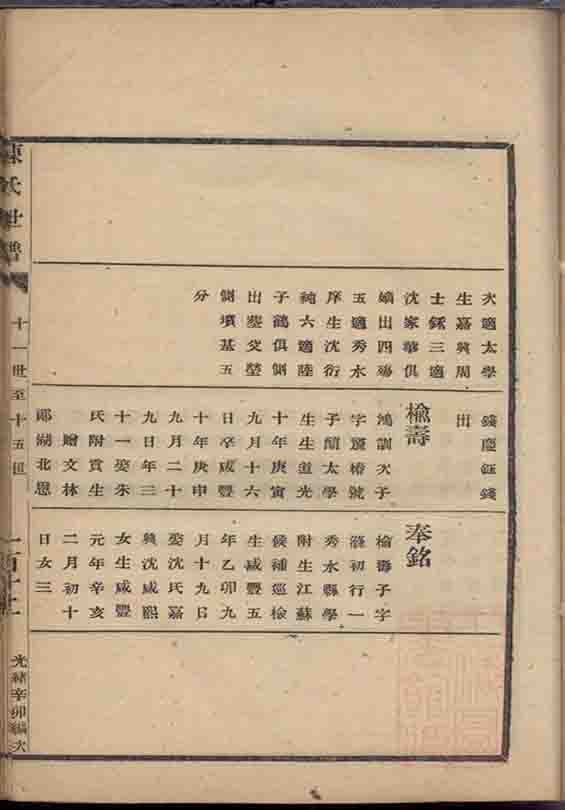 次適太學
生嘉興周
士三適
沈家華俱
嫡出四殤
五適秀水
庠生沈衍
純六適陸
子鶴俱側
出墓父塋
側墳基五
分
錢慶鈺錢
出
楡壽
鴻訓次子
字椿號
子蘭太學
生生道光
十年庚寅
九月十六
日卒咸豐
十年庚申
九月二十
九日年三
十一娶朱
氏附貢生
贈文林
郎湖北恩
奉銘
楡壽子字
滌初行一
秀水縣學
附生江蘇
候補巡檢
生咸豐五
年乙卯九
月十九日
娶沈氏嘉
興沈咸熙
女生咸豐
元年辛亥
二月初十
日女三
陳氏世譜
十一世至十五世
一百十二
光緒辛卯編次